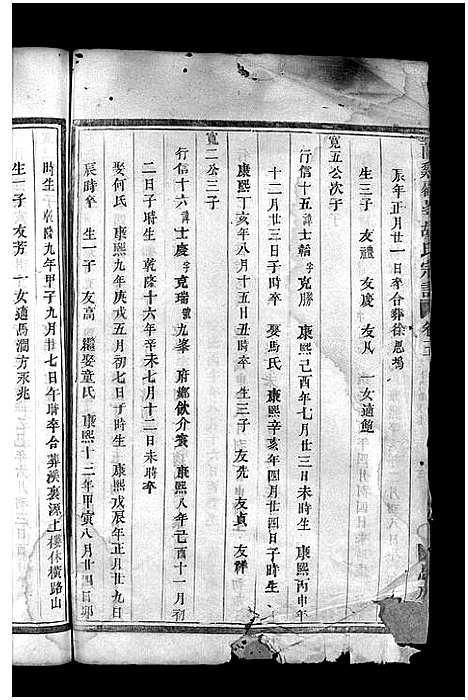 辰年正月廿一日卒合葬徐思塢
生三子　友慶　友夙　一女適鮑
寬五公次子
行信十五諱士翰字克勝　康熙己酉年七月廿三日未時生　康熙丙申年
十二月廿三日子時卒　娶馬氏　康熙辛亥年四月廿四日子時生
康熙丁亥年八月十五日丑時卒　生三子　友先　友貞　友祥
寬二公三子
行信十六諱士慶字克瑞號九峯　府鄉飲介賓　康熙八年己酉十一月初
二日子時生　乾隆十六年辛未七月十二日未時卒
娶何氏　康熙九年庚戌五月初七日子時生　康熙戊辰年正月廿九日
辰時卒　生一子　友高　繼娶童氏　康熙十三年甲寅八月廿四日卯
時生　乾隆九年甲子九月廿七日午時卒合葬溪裏源上樓休橫路山
生一子　友芳　一女適馬澗方永兆